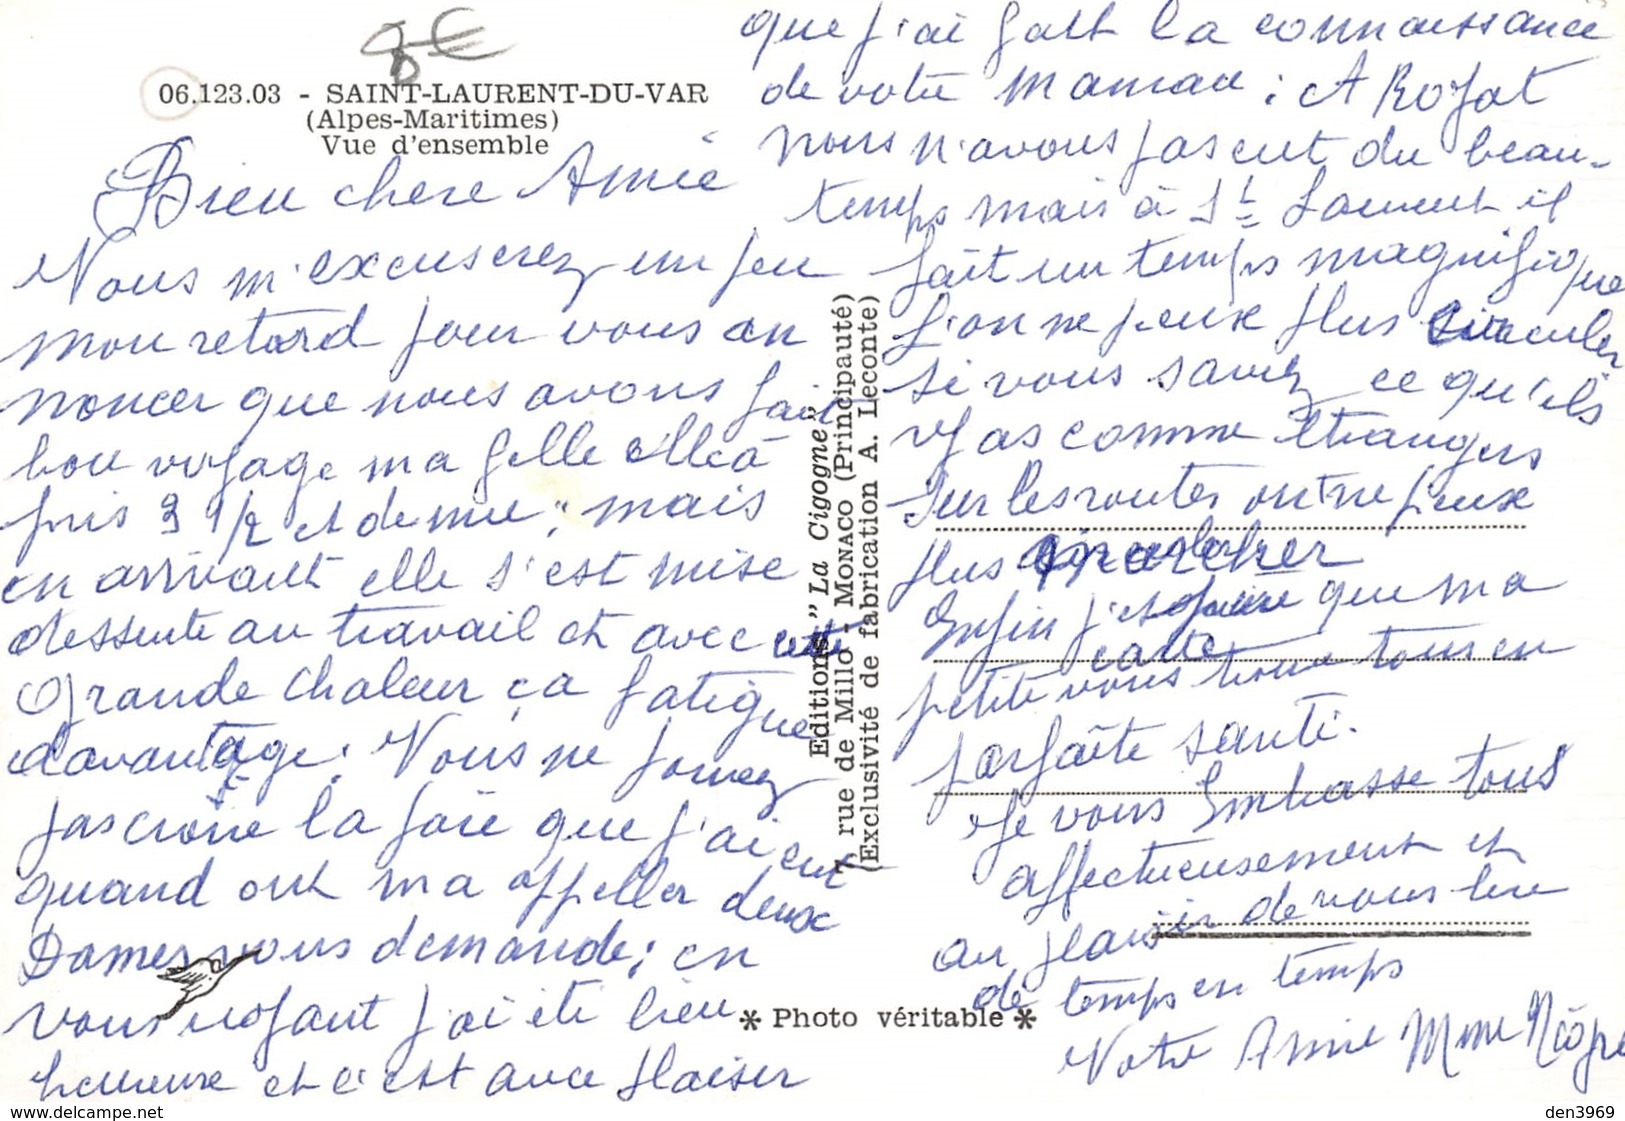 06.123.03 - SAINT-LAURENT-DU-VAR
(Alpes-Maritimes)
Vue d'ensemble
Bien chere Amie
Vous m'excuserez un peu
mon retard pour vous an
noncer que nous avons fait
bon voyage ma fille elle à
pris 3 1/2 et demie ; mais
en arrivant elle s'est mise
dessuite au travail et avec cette
Grande chaleur ça fatigue
davantage. Vous ne pouvez
pas croire la joie que j'ai eut
quand ont m a appeller deux
Dames vous demande ; en
vous voyant j'ai été bien
heureuse et c'est avec plaisir
que j'ai fait la connaissance
de votre maman ; A Royat
nous n'avons pas eut du beau-
temps mais à St Laurent il
fait un temps magnifique
l'on ne peux plus circuler
si vous saviez ce qu'ils
y as comme étrangers
sur les routes ont ne peux
plus marcher
Enfin j'espère que ma
carte
petite vous trouve tous en
parfaite santé.
Je vous Embrasse tous
affectueusement et
au plaisir de vous lire
de temps en temps
Votre Amie Mme
Editions "La Cigogne"
7, rue de Millo - MONACO (Principauté)
(Exclusivité de fabrication A. Leconte)
* Photo véritable *
delcampe.net
den3969